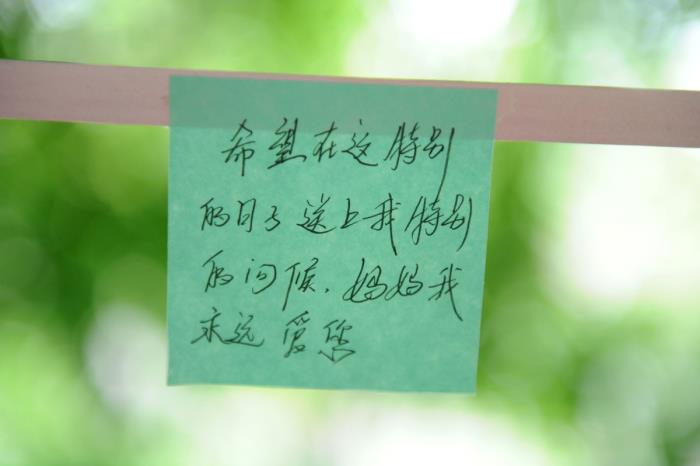 希望在这特别
的日子送上我特别
的问候.妈妈我
永远爱您